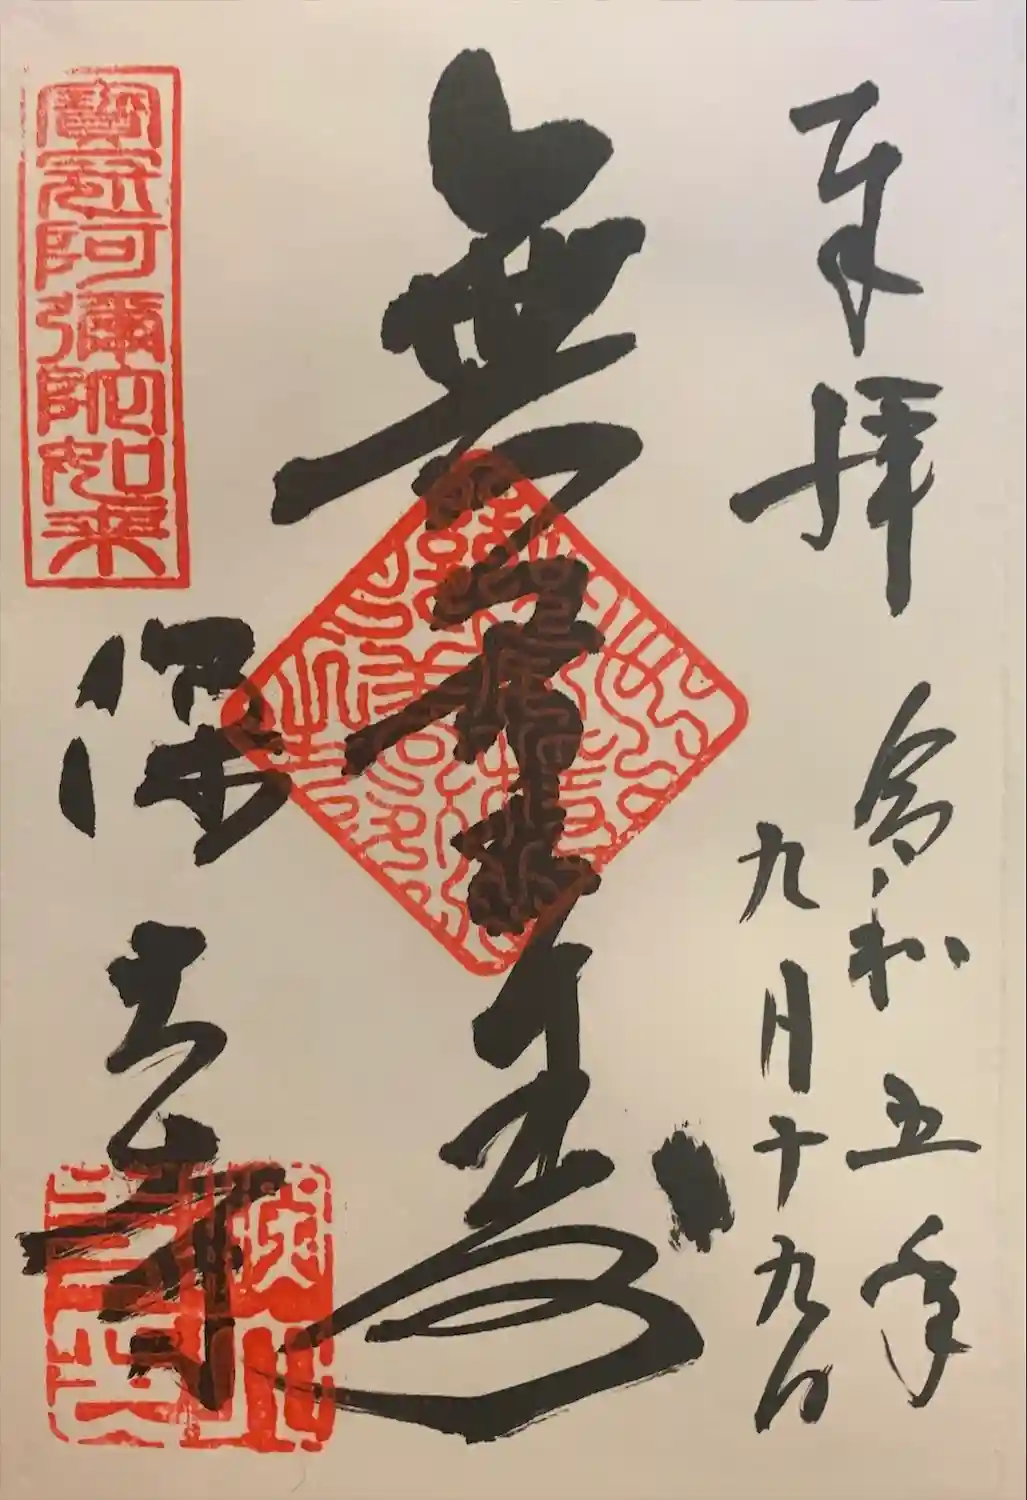 奉拝
令和五年
九月十九日
無量寿
寳冠阿彌陀如来
深大寺